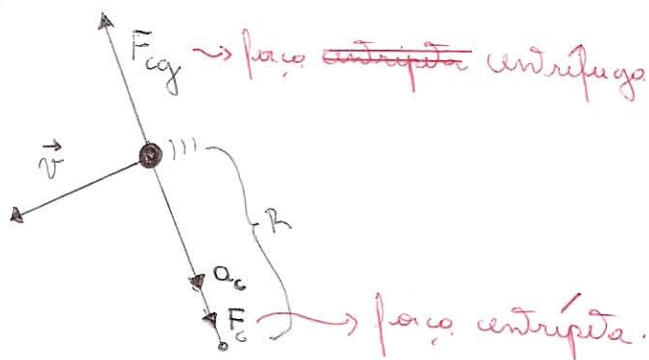 F_cg → força ~~centrípeta~~ centrífuga
v⃗
R
a_c
F_c → força centrípeta.